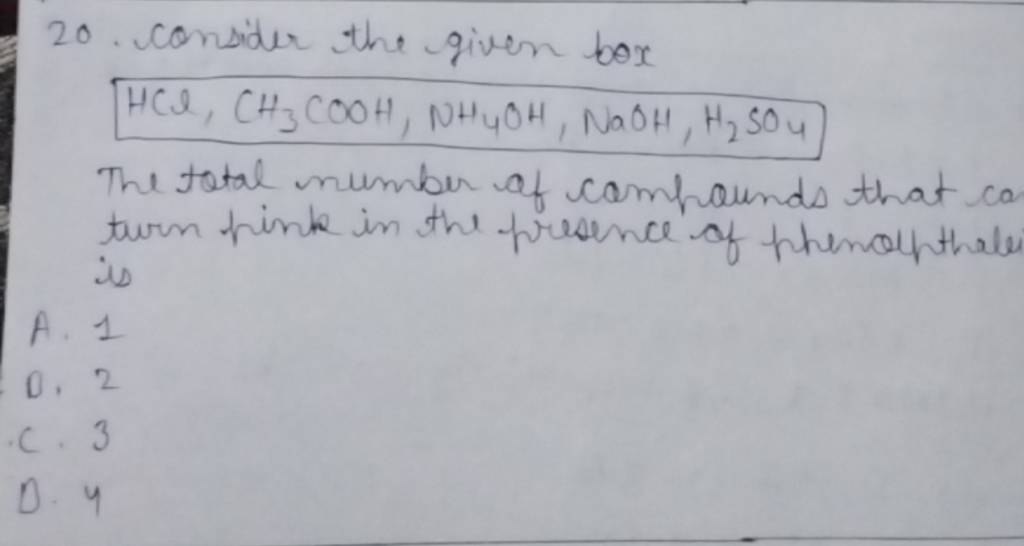 20. consider the given box
HCl, CH3COOH, NH4OH, NaOH, H2SO4
The total number of compounds that ca
turn pink in the presence of phenolpthalei
is
A. 1
D. 2
.C. 3
D. 4